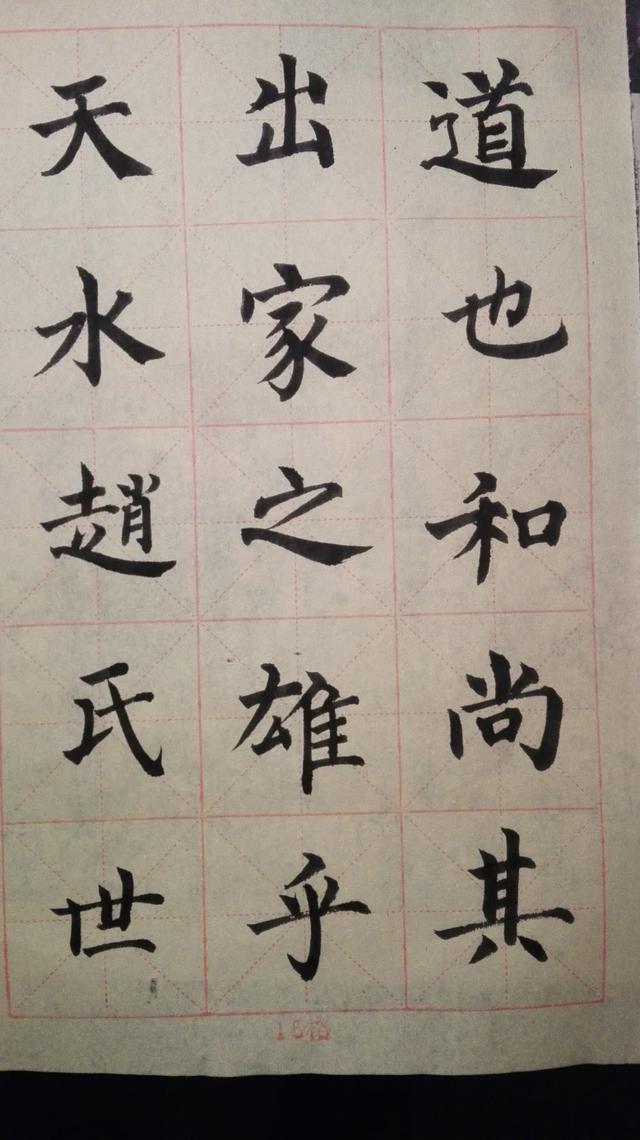 道也和尚其
出家之雄乎
天水趙氏世
15格